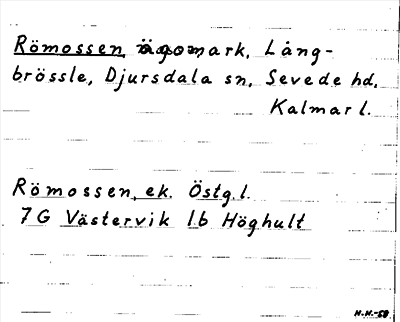 Römossen, ägomark, Lång-
brössle, Djursdala sn, Sevede hd,
Kalmar l.
Römossen, ek. Östg. l.
7G Västervik 1b Höghult
H.H.-68